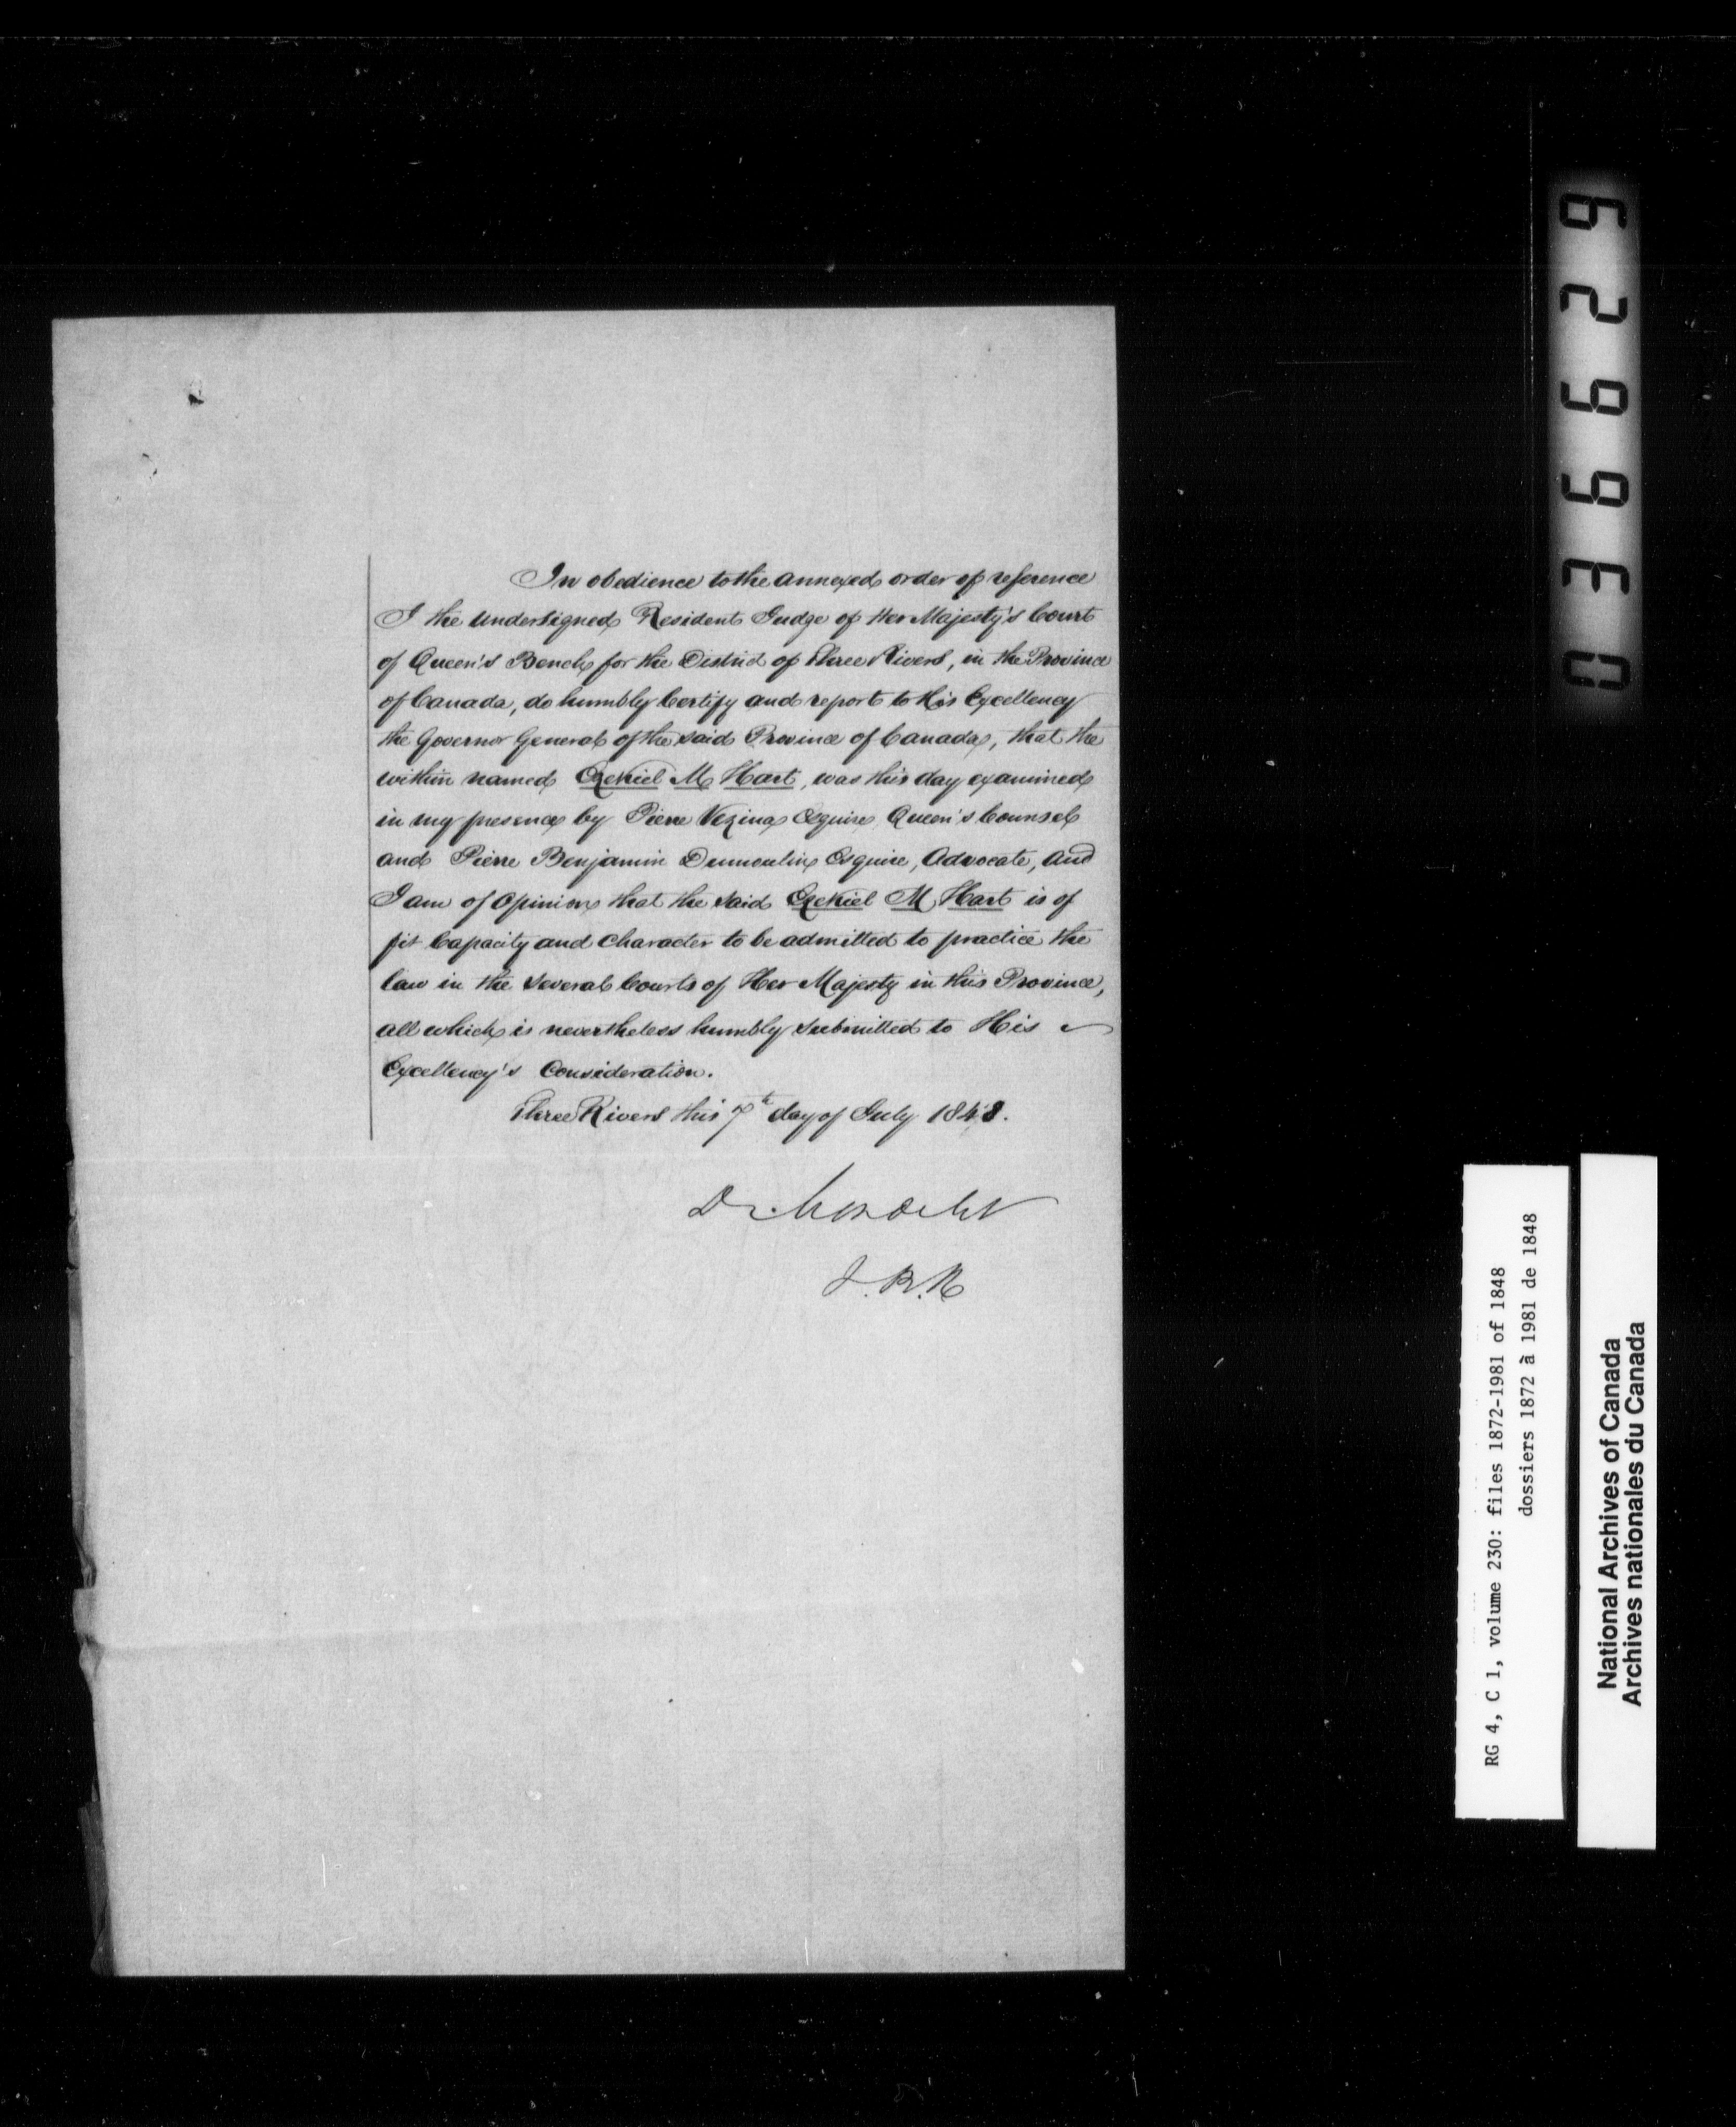 In obedience to the annexed order of reference
I the undersigned Resident Judge of Her Majesty's Court
of Queen's Bench for the District of Three Rivers, in the Province
of Canada, do humbly Certify and report to His Excellency
the Governor General of the said Province of Canada, that the
within named Ezekiel M Hart, was this day examined
in my presence by Pierre Vezina Esquire Queen's Counsel
and Pierre Benjamin Dumoulin Esquire, Advocate, and
I am of Opinion that the said Ezekiel M Hart is of
fit Capacity and Character to be admitted to practice the
law in the several Courts of Her Majesty in this Province,
all which is nevertheless humbly submitted to His
Excellency's Consideration.
Three Rivers this 7th day of July 1848.
036629
RG 4, C 1, volume 230: files 1872-1981 of 1848
dossiers 1872 à 1981 de 1848
National Archives of Canada
Archives nationales du Canada